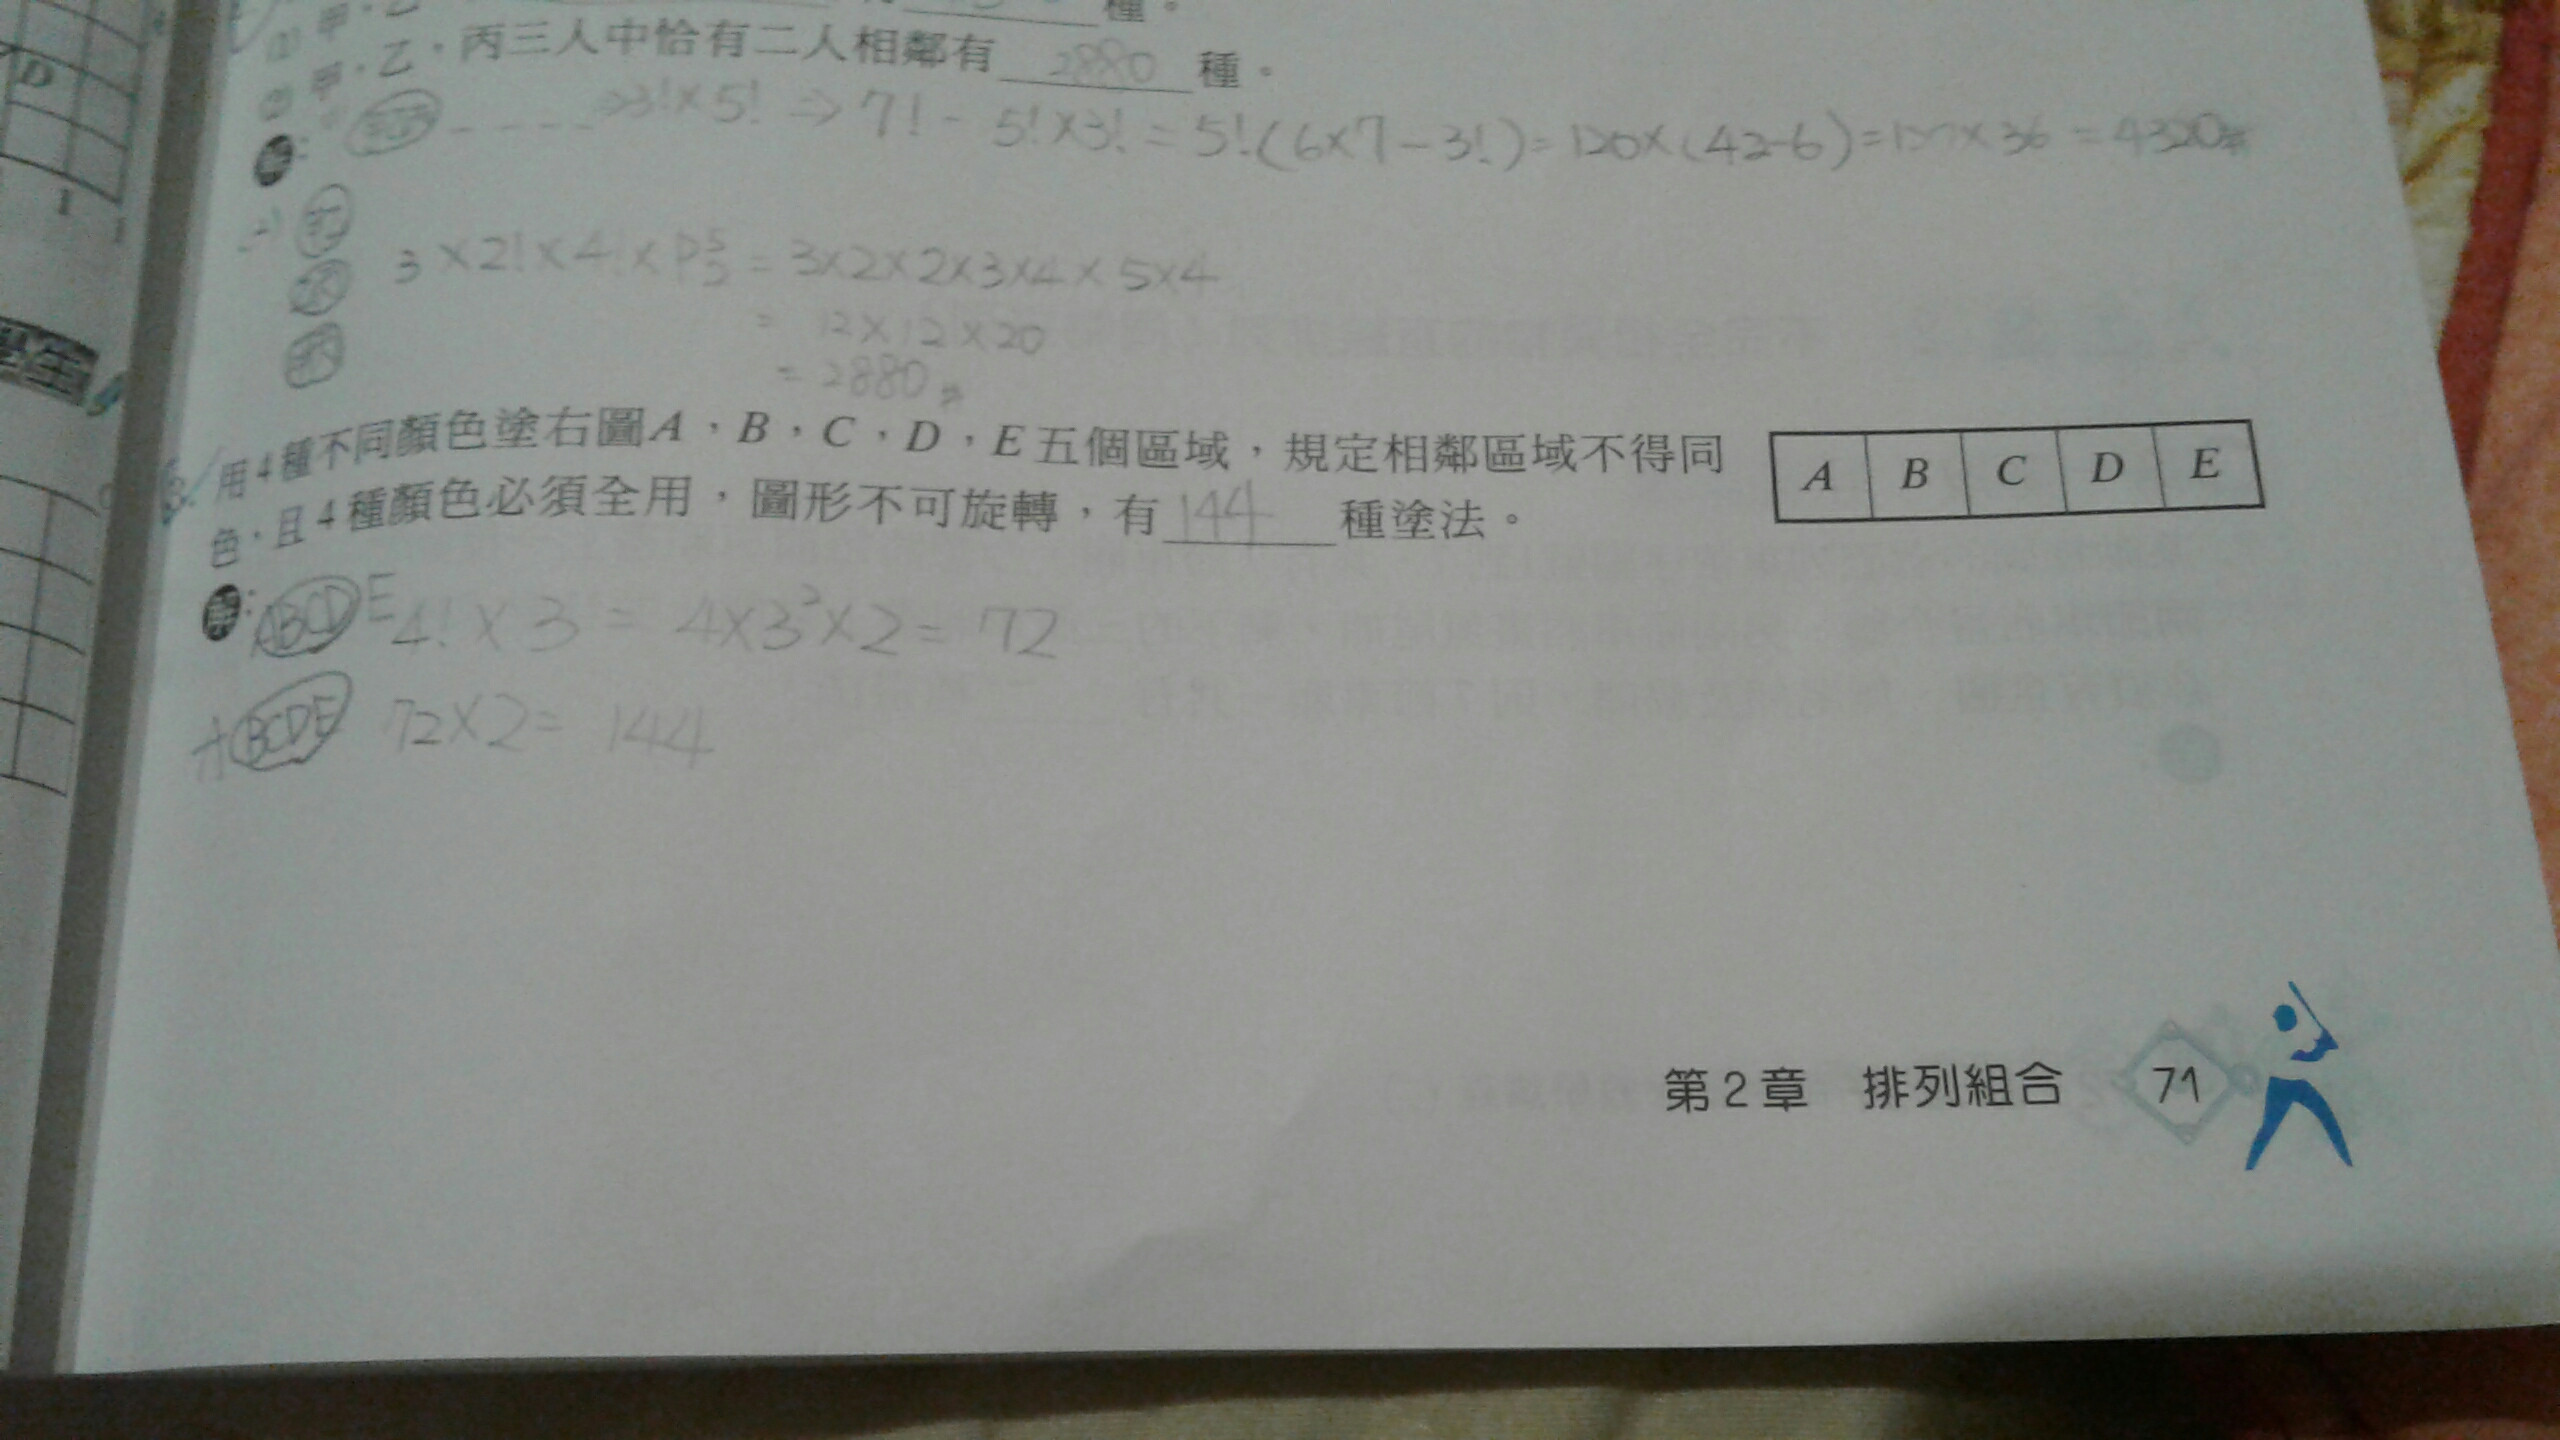 (1) 甲、乙 種。
(2) 甲、乙、丙三人中恰有二人相鄰有 2880 種。
解: ⇒3!×5! ⇒ 7! - 5!×3! = 5!(6×7-3!) = 120×(42-6) = 120×36 = 4320
3×2!×4!×P⁵₂ = 3×2×2×3×4×5×4
= 12×12×20
= 2880
3. 用4種不同顏色塗右圖A,B,C,D,E五個區域,規定相鄰區域不得同
色,且4種顏色必須全用,圖形不可旋轉,有 144 種塗法。
A B C D E
解: ABCD E 4!×3 = 4×3²×2 = 72
A BCDE 72×2 = 144
第2章 排列組合 71
D
1
學生